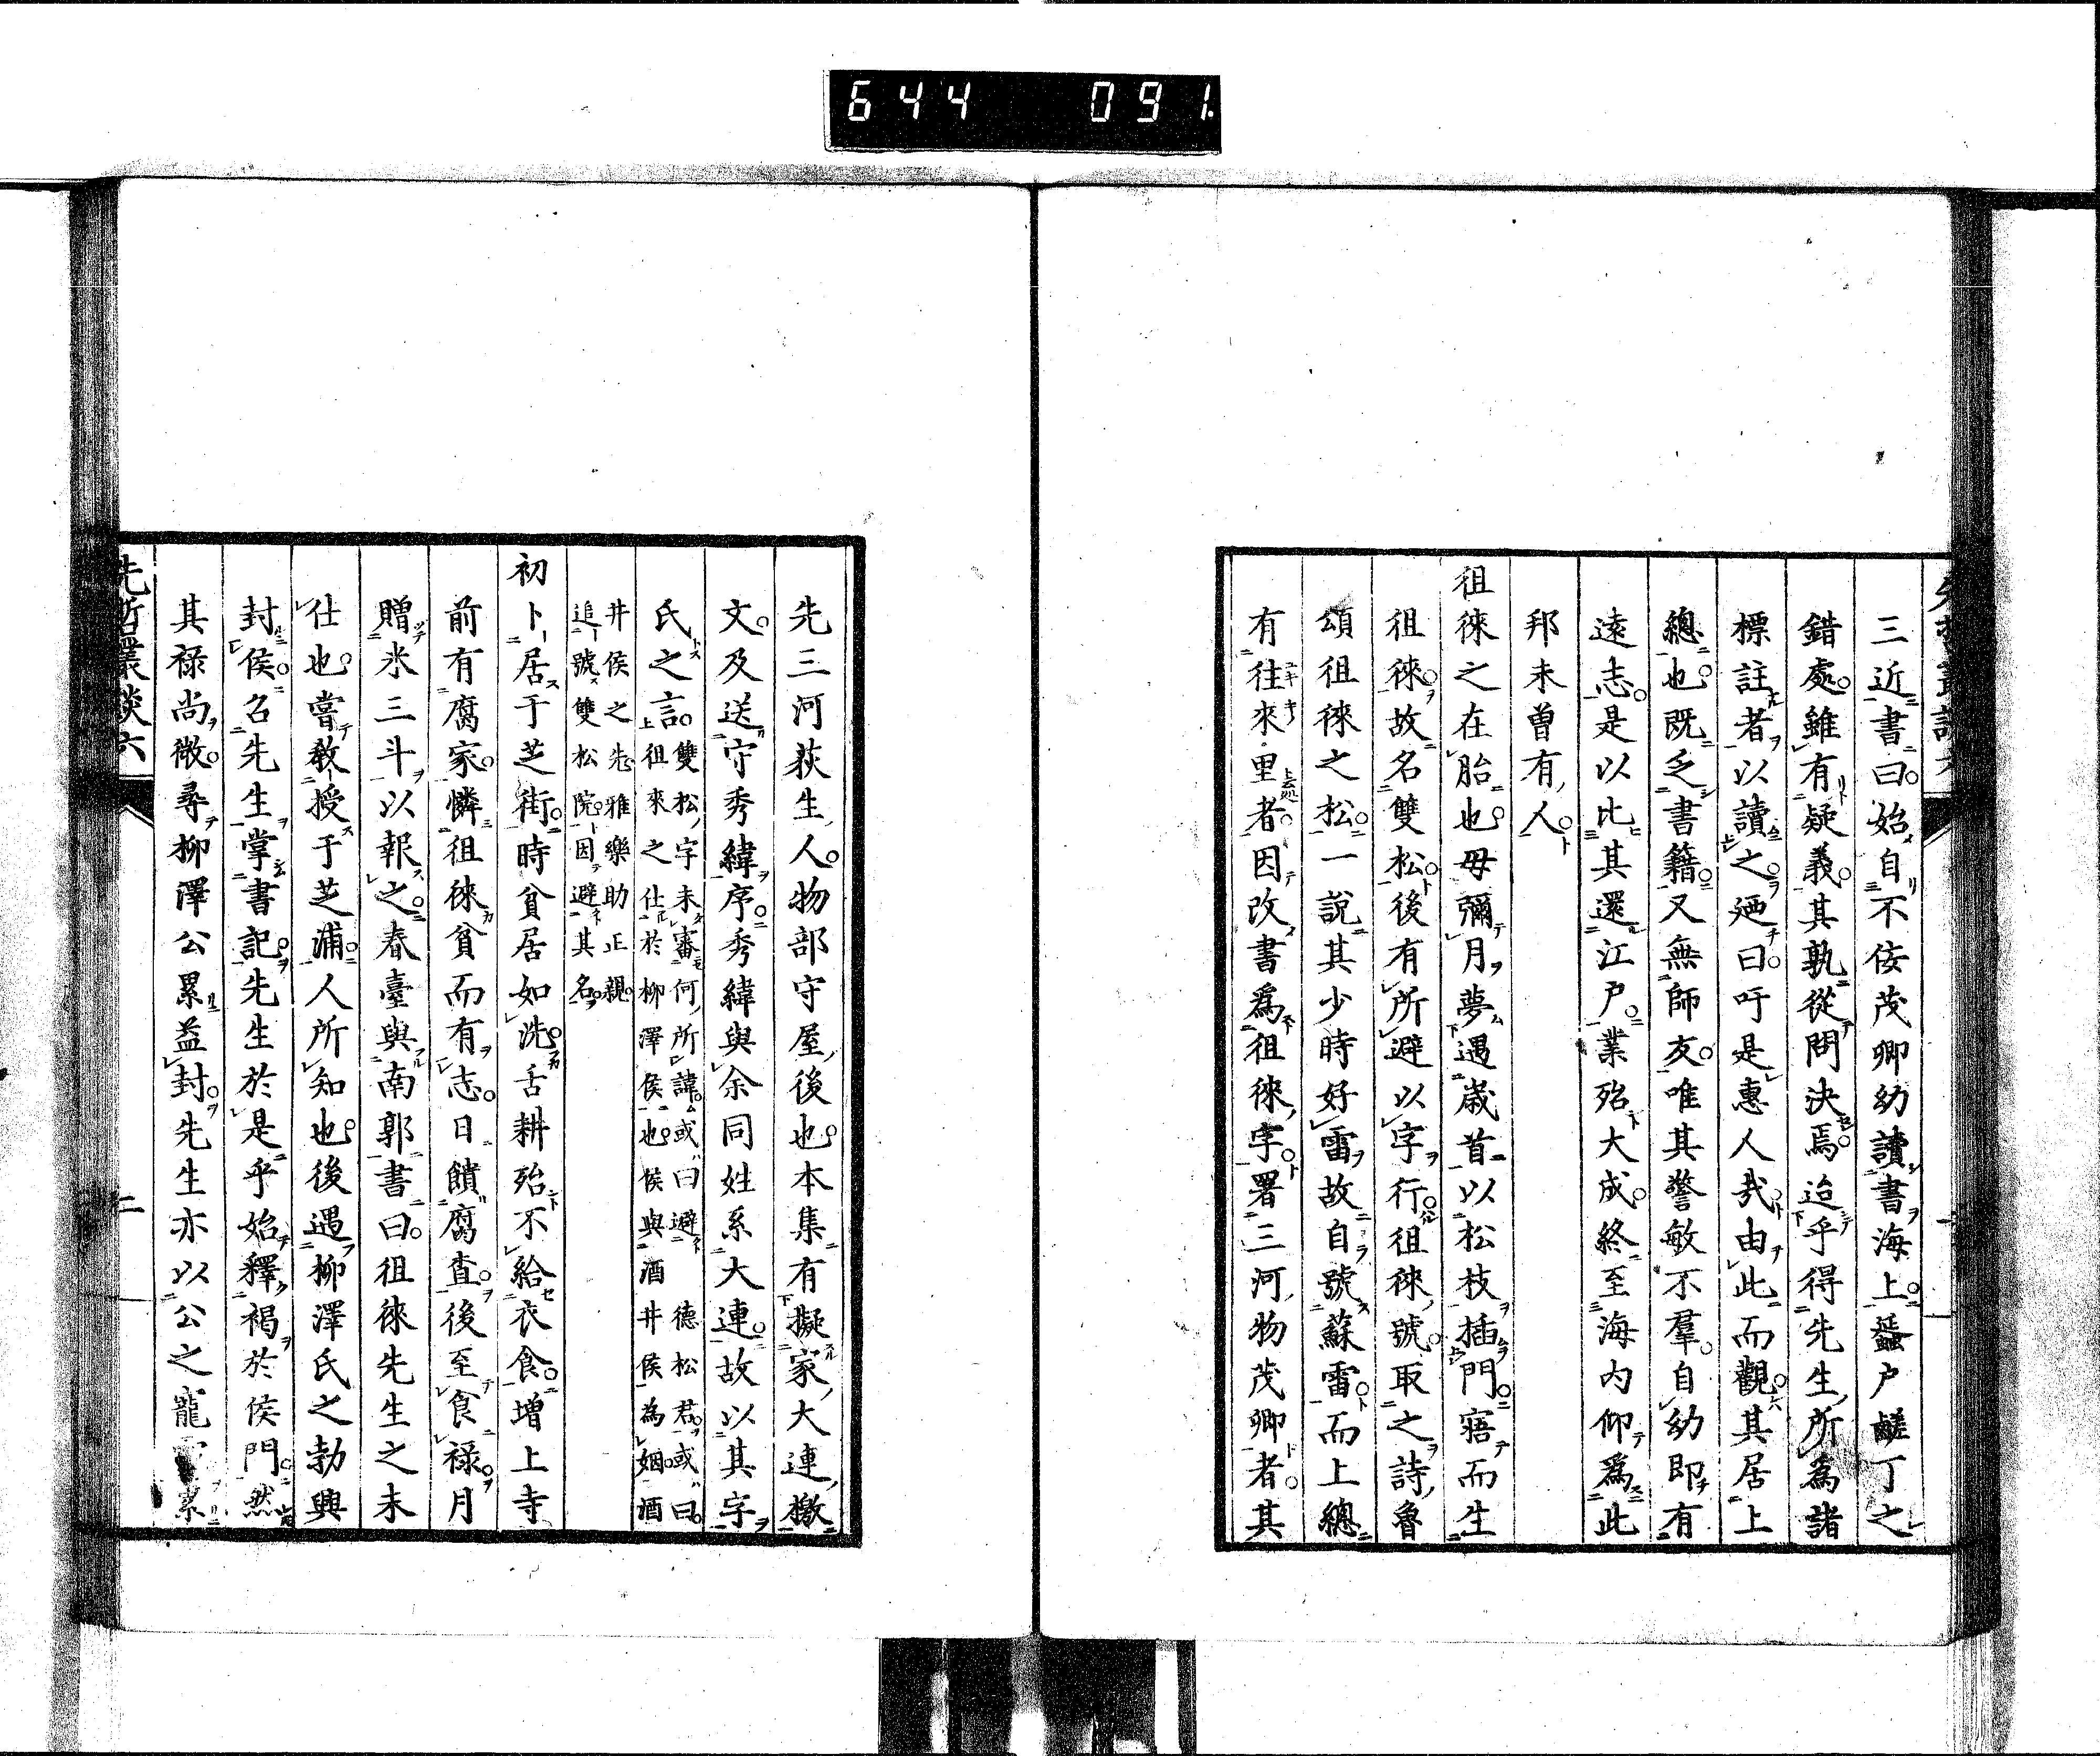 644 091.
三近書曰始自不佞茂卿幼讀書海上蜑户鹺丁之
錯處雖有疑義其孰從問決焉迨乎得先生所為諸
標註者以讀之廼曰吁是惠人哉由此而觀其居上
總也既乏書籍又無師友唯其警敏不羣自幼即有
遠志是以比其還江户業殆大成終至海内仰爲此
邦未曾有人
徂徠之在胎也母彌月夢遇歲首以松枝插門寤而生
徂徠故名雙松後有所避以字行徂徠號取之詩魯
頌徂徠之松一說其少時好雷故自號蘇雷而上總
有往來里者因改書爲徂徠字署三河物茂卿者其
先三河荻生人物部守屋後也本集有擬家大連檄
文及送守秀緯序秀緯與余同姓系大連故以其字
氏之言雙松字未審何所諱或曰避德松君或曰
徂來之仕於柳澤侯也侯與酒井侯為姻酒
井侯之先雅樂助正親
追號雙松院因避其名
初卜居于芝街時貧居如洗舌耕殆不給衣食增上寺
前有腐家憐徂徠貧而有志日饋腐査後至食禄月
贈米三斗以報之春臺與南郭書曰徂徠先生之未
仕也嘗教授于芝浦人所知也後遇柳澤氏之勃興
封侯召先生掌書記先生於是乎始釋褐於侯門然
其禄尚微尋柳澤公累益封先生亦以公之寵
累
先哲叢談六
二